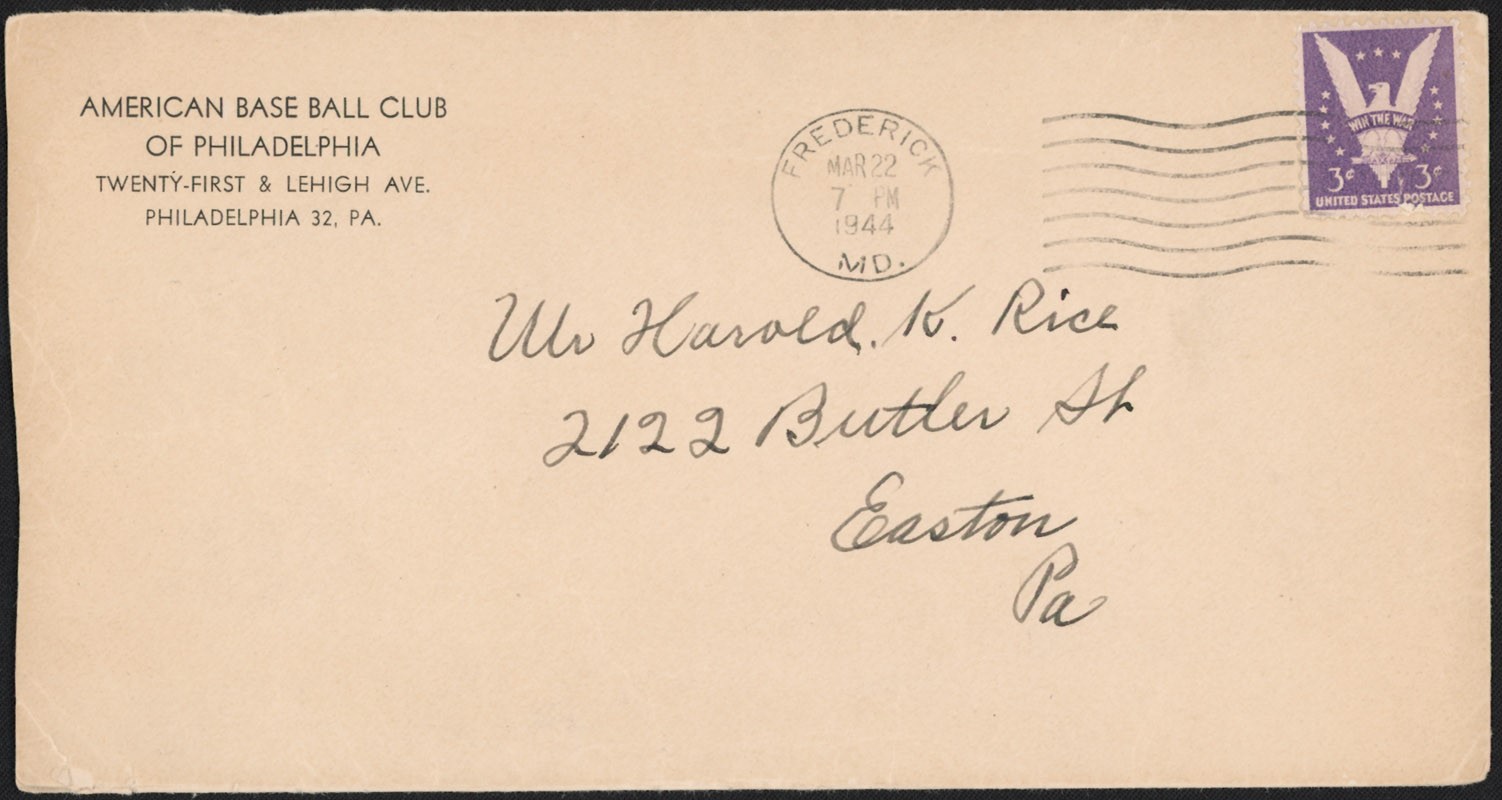 AMERICAN BASE BALL CLUB
OF PHILADELPHIA
TWENTY-FIRST & LEHIGH AVE.
PHILADELPHIA 32, PA.
FREDERICK
MAR 22
7 PM
1944
MD.
WIN THE WAR
3¢ 3¢
UNITED STATES POSTAGE
Mr Harold. K. Rice
2122 Butler St
Easton
Pa